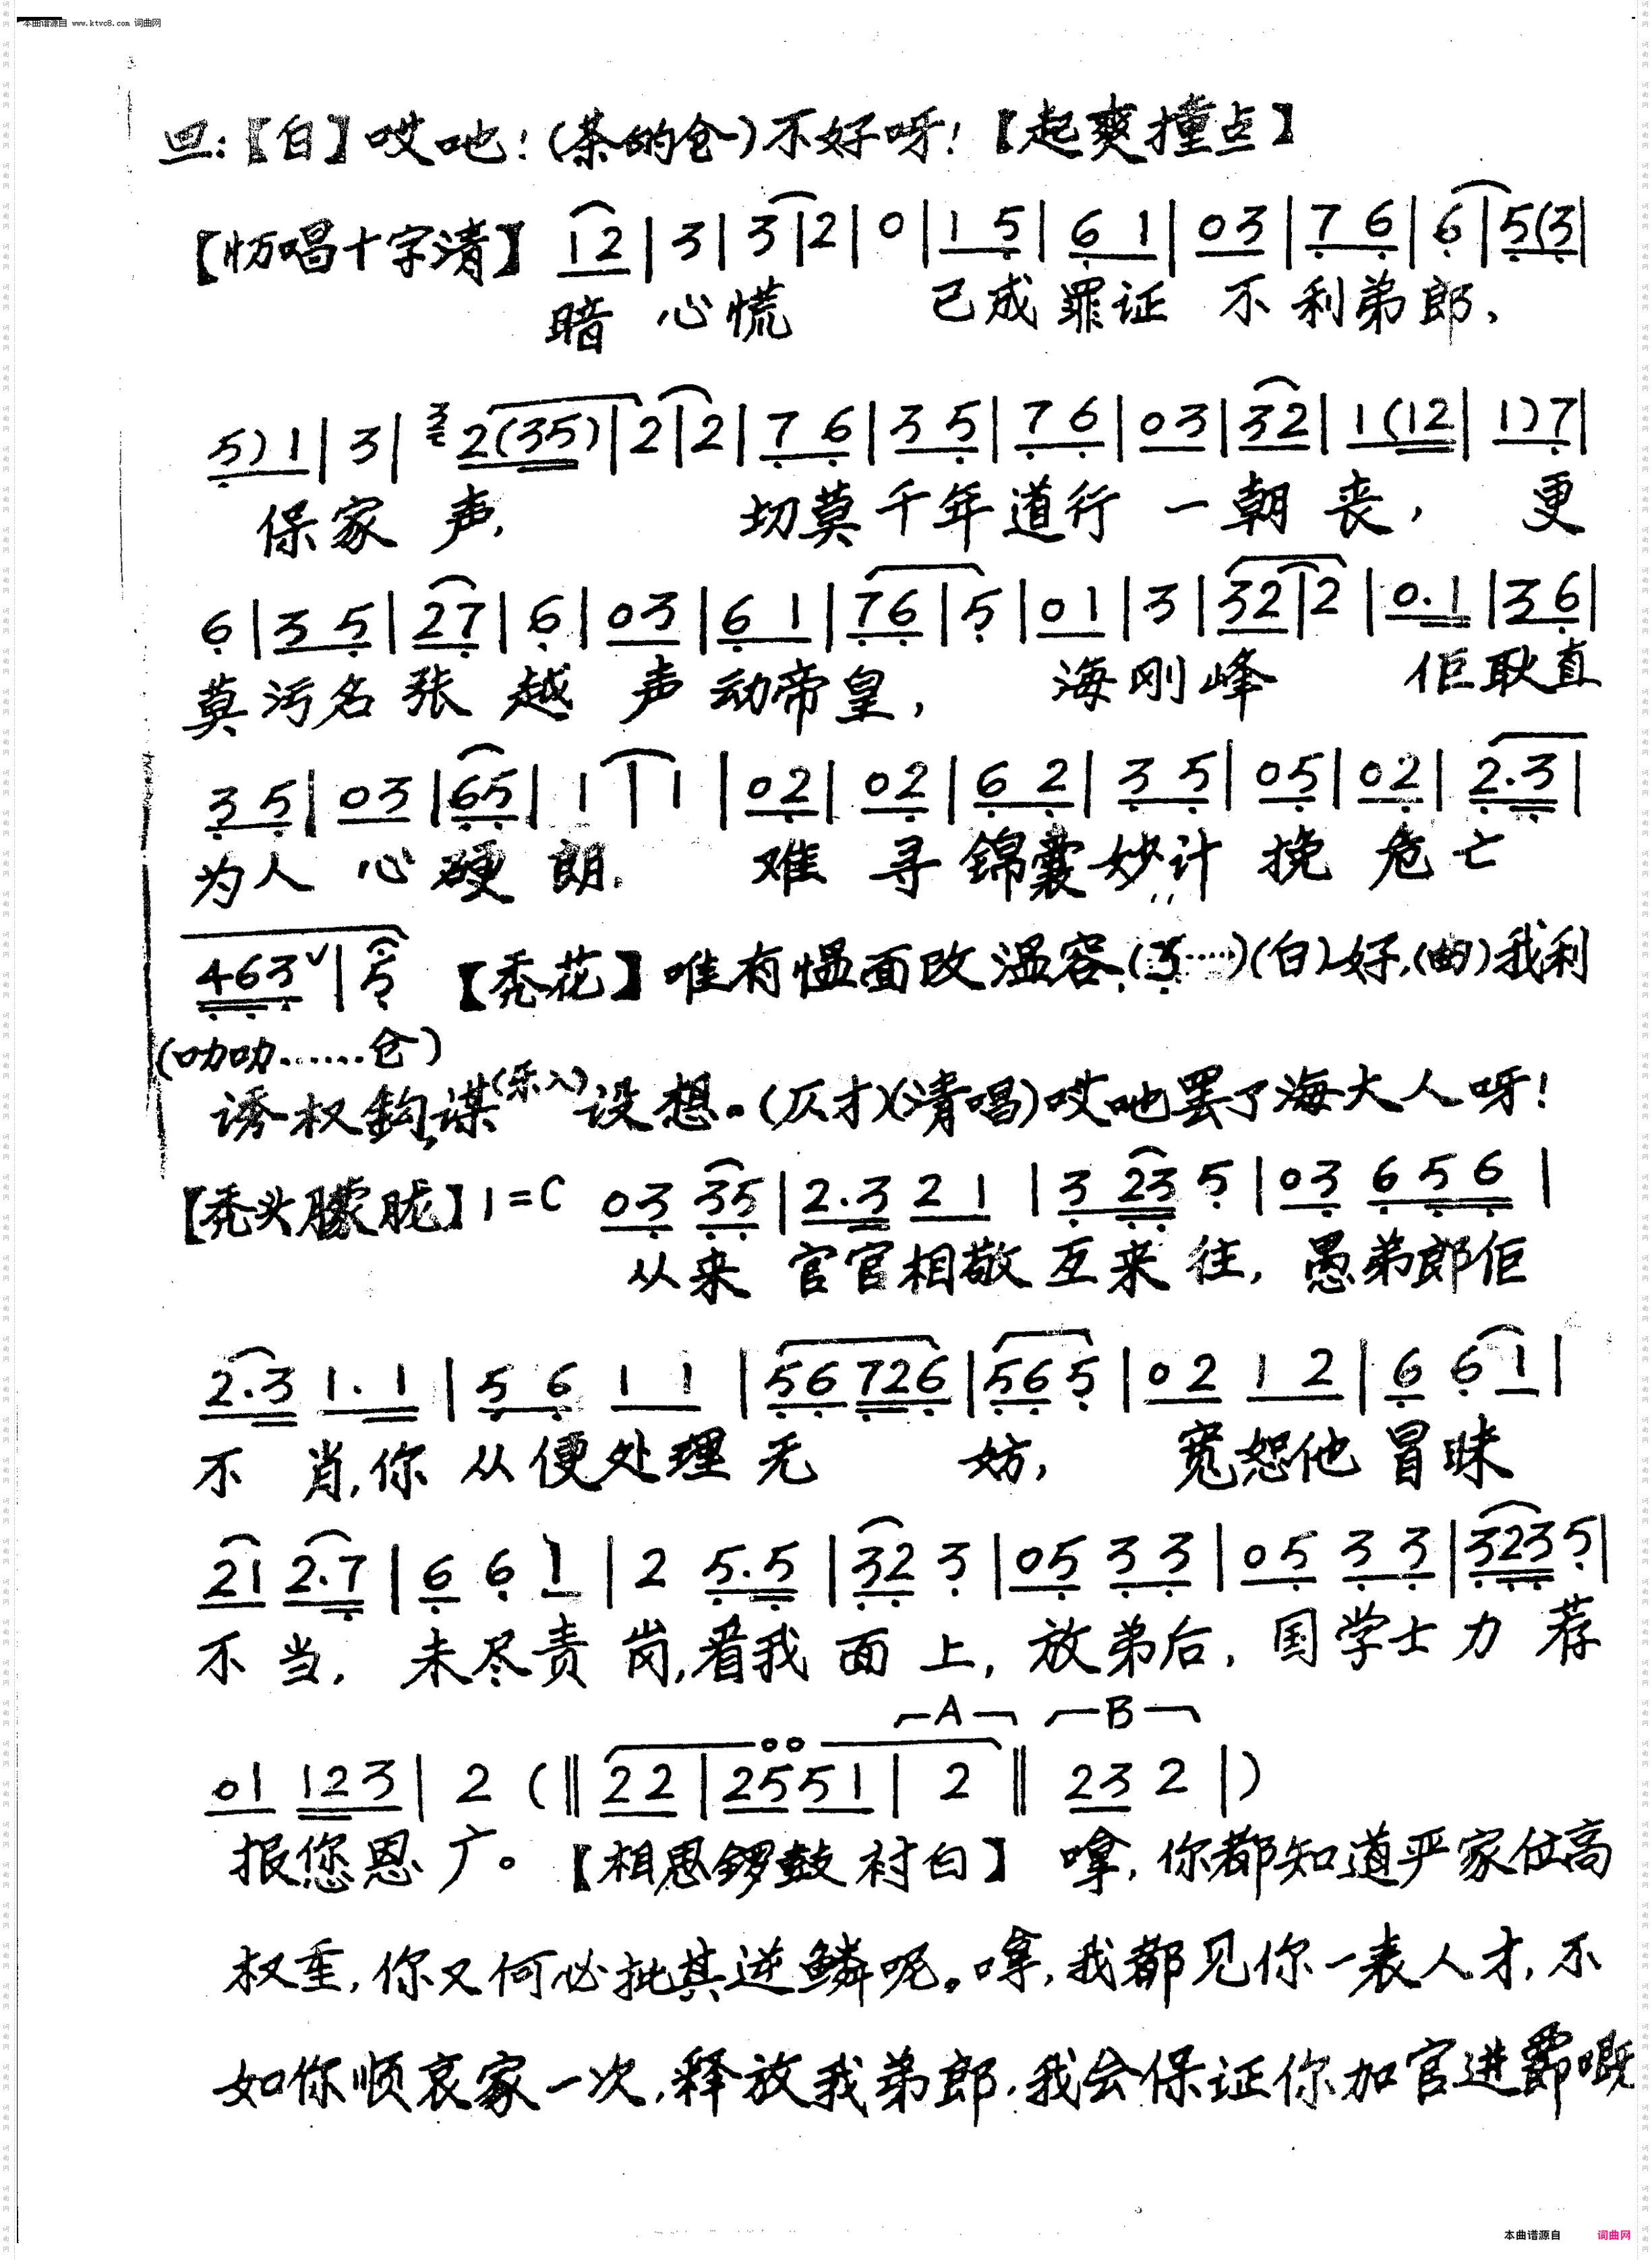 本曲谱源自 www.ktvc8.com 词曲网
旦:【白】哎吔!(茶的仓)不好呀!【起爽撞点】
【快唱十字清】 12 | 3 | 3 | 2 | 0 | 1 5 | 6 1 | 03 | 7 6 | 6 | 5(3 |
暗 心慌 已成罪证 不利弟郎、
5)1 | 3 | 3 2(35) | 2 | 2 | 7 6 | 3 5 | 7 6 | 03 | 32 | 1(12 | 1)7 |
保家声, 切莫千年道行 一朝丧, 更
6 | 3 5 | 27 | 6 | 03 | 6 1 | 76 | 5 | 01 | 3 | 32 | 2 | 0.1 | 36 |
莫污名张越 声动帝皇, 海刚峰 佢耿直
3 5 | 03 | 65 | 1 | 1 | 02 | 02 | 6 2 | 3 5 | 05 | 02 | 2.3 |
为人 心硬朗. 难 寻锦囊妙计 挽危亡
463 ∨ | 5 【秃花】唯有愠面改温容.(3……)(白)好,(曲)我利
(叻叻……仓)
诱权钩,谋(乐入)设想。(仄才)(清唱)哎吔罢了海大人呀!
【秃头朦胧】1=C 03 35 | 2.3 2 1 | 3 23 5 | 03 6 5 6 |
从来 官官相敬互来往, 愚弟郎佢
2.3 1.1 | 5 6 1 1 | 56 726 | 56 5 | 02 1 2 | 6 6 1 |
不肖,你从便处理无妨, 宽恕他冒昧
21 2.7 | 6 6 1 | 2 5.5 | 32 3 | 05 3 3 | 05 3 3 | 323 5 |
不当, 未尽责岗,看我面上, 放弟后, 国学士力荐
A B
01 123 | 2 (‖ 22 | 25 51 | 2 ‖ 23 2 |)
报您恩广。【相思锣鼓衬白】 嗱,你都知道严家位高
权重,你又何必批其逆鳞呢。嗱,我都见你一表人才,不
如你顺哀家一次,释放我弟郎,我会保证你加官进爵嘅
本曲谱源自 词曲网